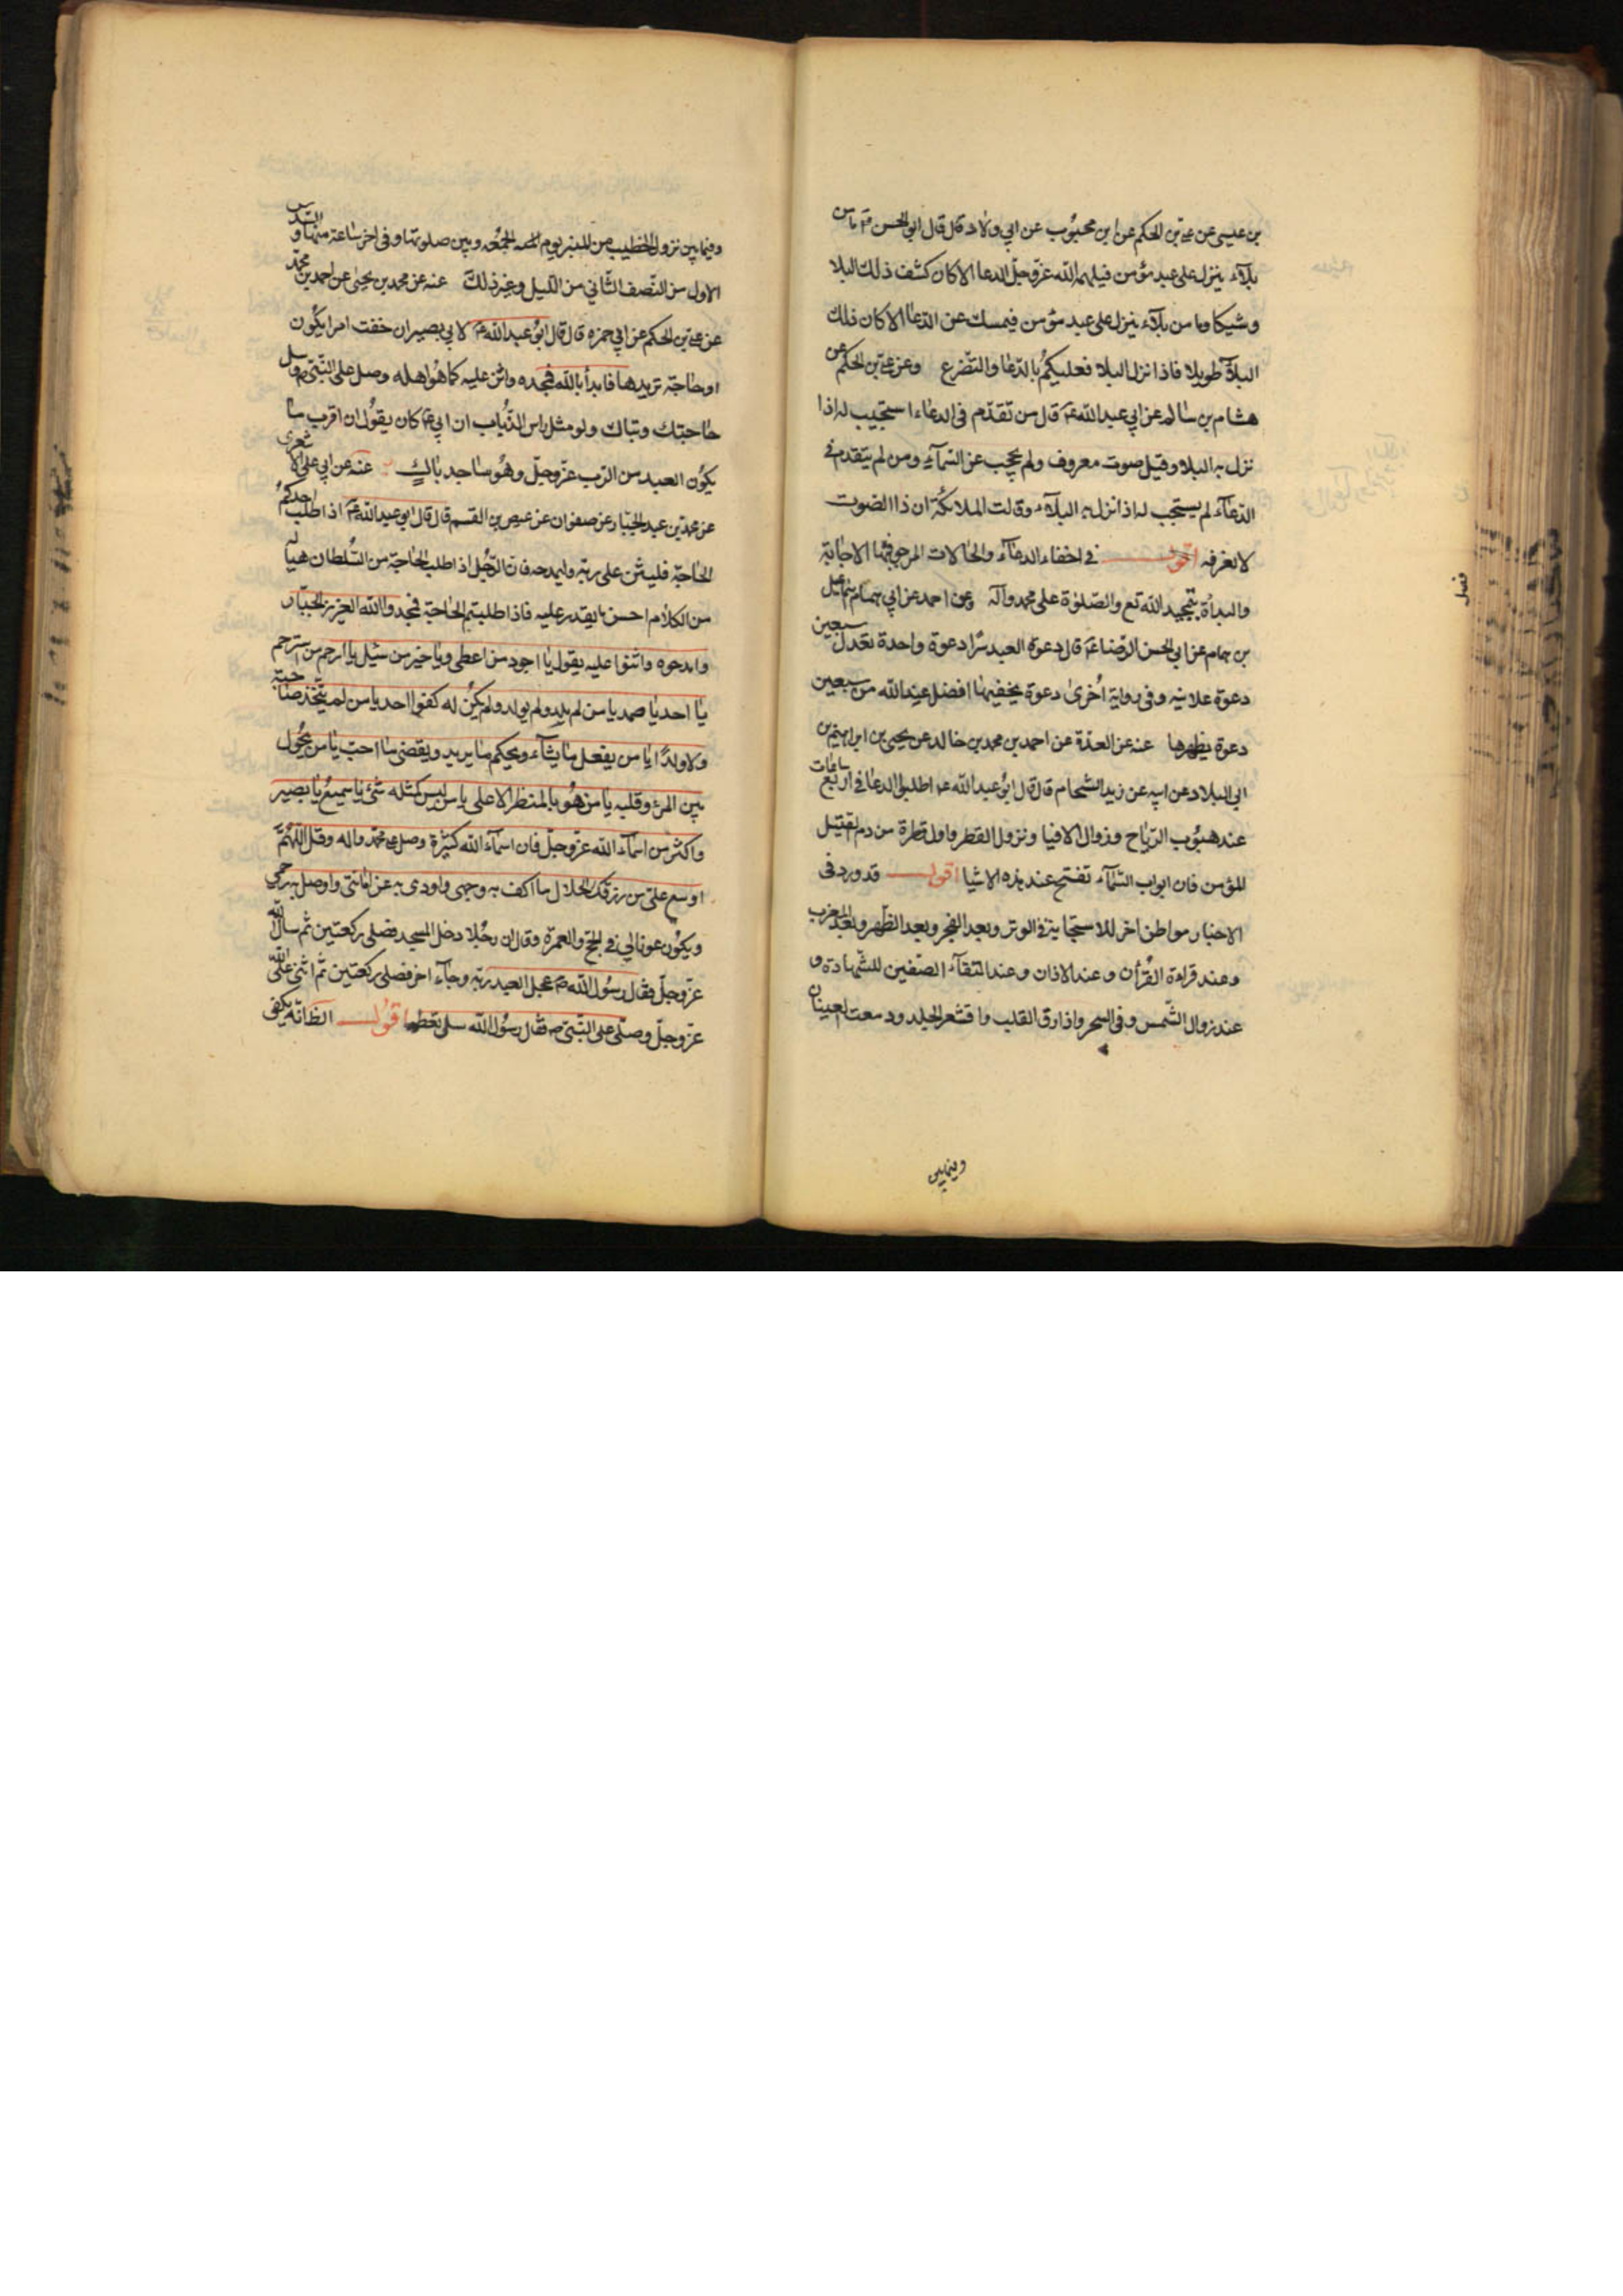 بن عيسى عن على بن الحكم عن ابن محبوب عن ابي ولاد قال قال ابو الحسن م ما من
بلاء ينزل على عبد مؤمن فيلهمه الله عز وجل الدعا الا كان كشف ذلك البلا
وشيكا وما من بلاء ينزل على عبد مؤمن فيمسك عن الدعا الا كان ذلك
البلاء طويلا فاذا نزل البلا فعليكم بالدعا والتضرع وعن على بن الحكم عن
هشام بن سالم عن ابي عبد الله ع قال من تقدم فى الدعاء استجيب له اذا
نزل به البلا وقيل صوت معروف ولم يحجب عن السماء ومن لم يتقدم في
الدعاء لم يستجب له اذ انزل به البلاء وقالت الملائكة ان ذا الصوت
لا نعرفه اقول في اخفاء الدعاء والحالات المرجو فيها الاجابة
والبدأة بتمجيد الله تع والصلوة على محمد وآله وعن احمد عن ابي همام اسماعيل
بن همام عن ابي الحسن الرضا ع قال دعوة العبد سرا دعوة واحدة تعدل سبعين
دعوة علانيه وفى رواية اخرى دعوة يخفيها افضل عند الله من سبعين
دعوة يظهرها عنه عن العدة عن احمد بن محمد بن خالد عن يحيى بن ابراهيم بن
ابي البلاد عن ابيه عن زيد الشحام قال قال ابو عبد الله ع اطلبوا الدعا فى اربع ساعات
عند هبوب الرياح وزوال الافيا ونزول القطر واول قطرة من دم القتيل
المؤمن فان ابواب السماء تفتح عند هذه الاشيا اقول قد ورد فى
الاخبار مواطن اخر للاستجابة فى الوتر وبعد الفجر وبعد الظهر وبعد المغرب
وعند قراءة القرآن وعند الاذان وعند التقاء الصفين للشهادة و
عند زوال الشمس وفى السحر واذا رق القلب واقشعر الجلد ودمعت العينان
وفيما بين
فصل
وفيما بين نزول الخطيب من المنبر يوم الجمعه وبين صلوتها وفى اخر ساعة منها و السدس
الاول من النصف الثاني من الليل وغير ذلك عنه عن محمد بن يحيى عن احمد بن محمد
عن على بن الحكم عن ابي حمزه قال قال ابو عبد الله ع لابي بصير ان خفت امرا يكون
او حاجة تريدها فابدأ بالله فمجده واثن عليه كما هو اهله وصل على النبي ص وسل
حاجتك وتباك ولو مثل راس الذباب ان ابي ع كان يقول ان اقرب ما
يكون العبد من الرب عز وجل وهو ساجد باك عنه عن ابي على الاشعرى
عن محمد بن عبد الجبار عن صفوان عن عيص بن القسم قال قال ابو عبد الله ع اذا طلب احدكم
الحاجة فليثن على ربه وليمدحه فان الرجل اذ اطلب الحاجة من السلطان هيا له
من الكلام احسن ما يقدر عليه فاذا طلبتم الحاجة فمجدوا الله العزيز الجبار
وامدحوه واثنوا عليه يقول يا اجود من اعطى ويا خير من سئل يا ارحم من استرحم
يا احد يا صمد يا من لم يلد ولم يولد ولم يكن له كفوا احد يا من لم يتخذ صاحبة
ولا ولدا يا من يفعل ما يشاء ويحكم ما يريد ويقضى ما احب يا من يحول
بين المرء وقلبه يا من هو بالمنظر الاعلى يا من ليس كمثله شئ يا سميع يا بصير
واكثر من اسماء الله عز وجل فان اسماء الله كثيرة وصل على محمد واله وقل اللهم
اوسع على من رزقك الحلال ما اكف به وجهى واودى به عن امانتى واوصل به رحمى
ويكون عونا لي في الحج والعمرة وقال ان رجلا دخل المسجد فصلى ركعتين ثم سال الله
عز وجل فقال رسول الله ص عجل العبد ربه وجاء اخر فصلى ركعتين ثم اثنى على الله
عز وجل وصلى على النبي ص فقال رسول الله سل تعطه اقول الظ انه يكفى